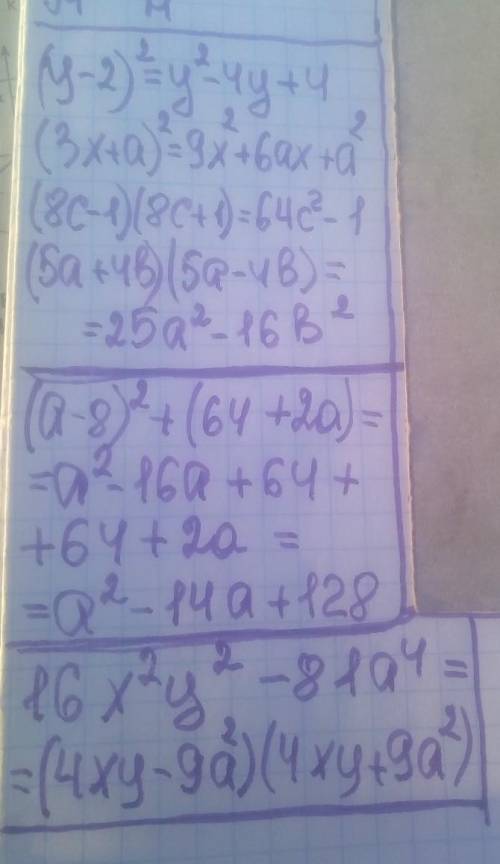 (y-2)²=y²-4y+4
(3x+a)²=9x²+6ax+a²
(8c-1)(8c+1)=64c²-1
(5a+4b)(5a-4b)=
=25a²-16b²
(a-8)²+(64+2a)=
=a²-16a+64+
+64+2a=
=a²-14a+128
16x²y²-81a⁴=
=(4xy-9a²)(4xy+9a²)